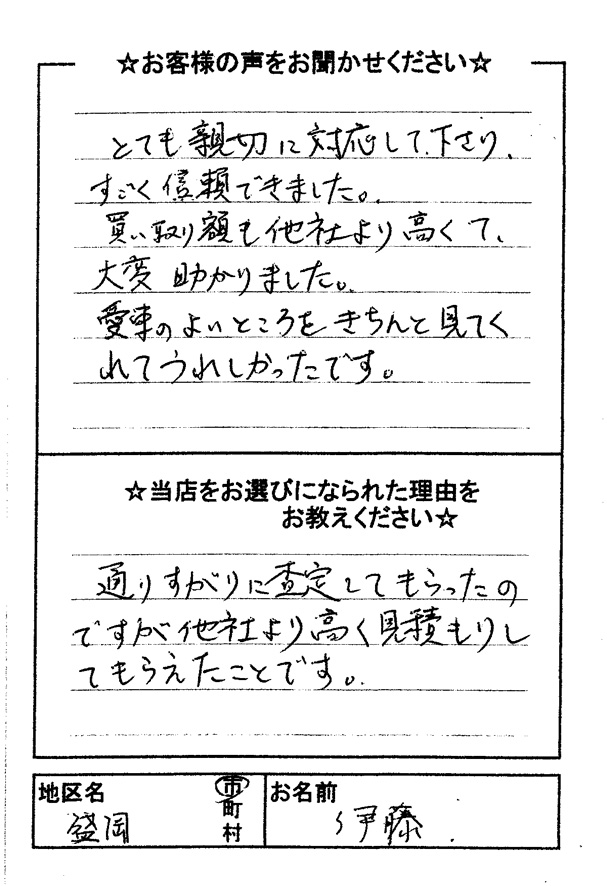 ☆お客様の声をお聞かせください☆
とても親切に対応して下さり、
すごく信頼できました。
買い取り額も他社より高くて、
大変助かりました。
愛車のよいところをきちんと見てく
れてうれしかったです。
☆当店をお選びになられた理由を
お教えください☆
通りすがりに査定してもらったの
ですが他社より高く見積もりし
てもらえたことです。
地区名
盛岡
市
町
村
お名前
伊藤